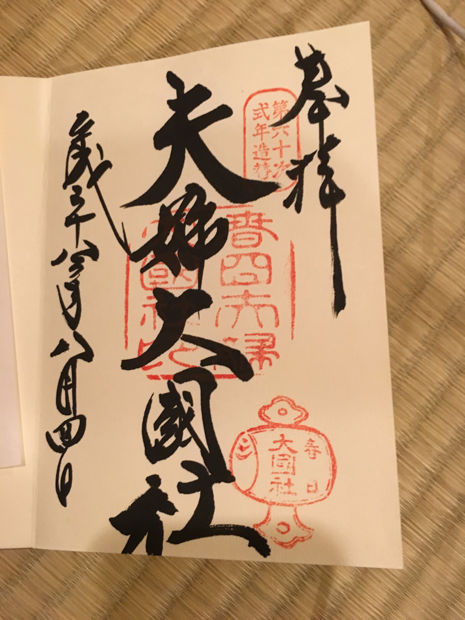 奉拝
第六十次
式年造替
夫婦大國社
春日夫婦
大國社印
春日
大國社
平成二十八年八月四日